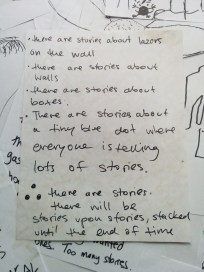 • there are stories about lazors
on the wall
• there are stories about
walls
• there are stories about
boxes.
• There are stories about
a tiny blue dot where
everyone is telling
lots of stories.
there are stories.
there will be
stories upon stories, stacked
until the end of time
ones. Too many stories.